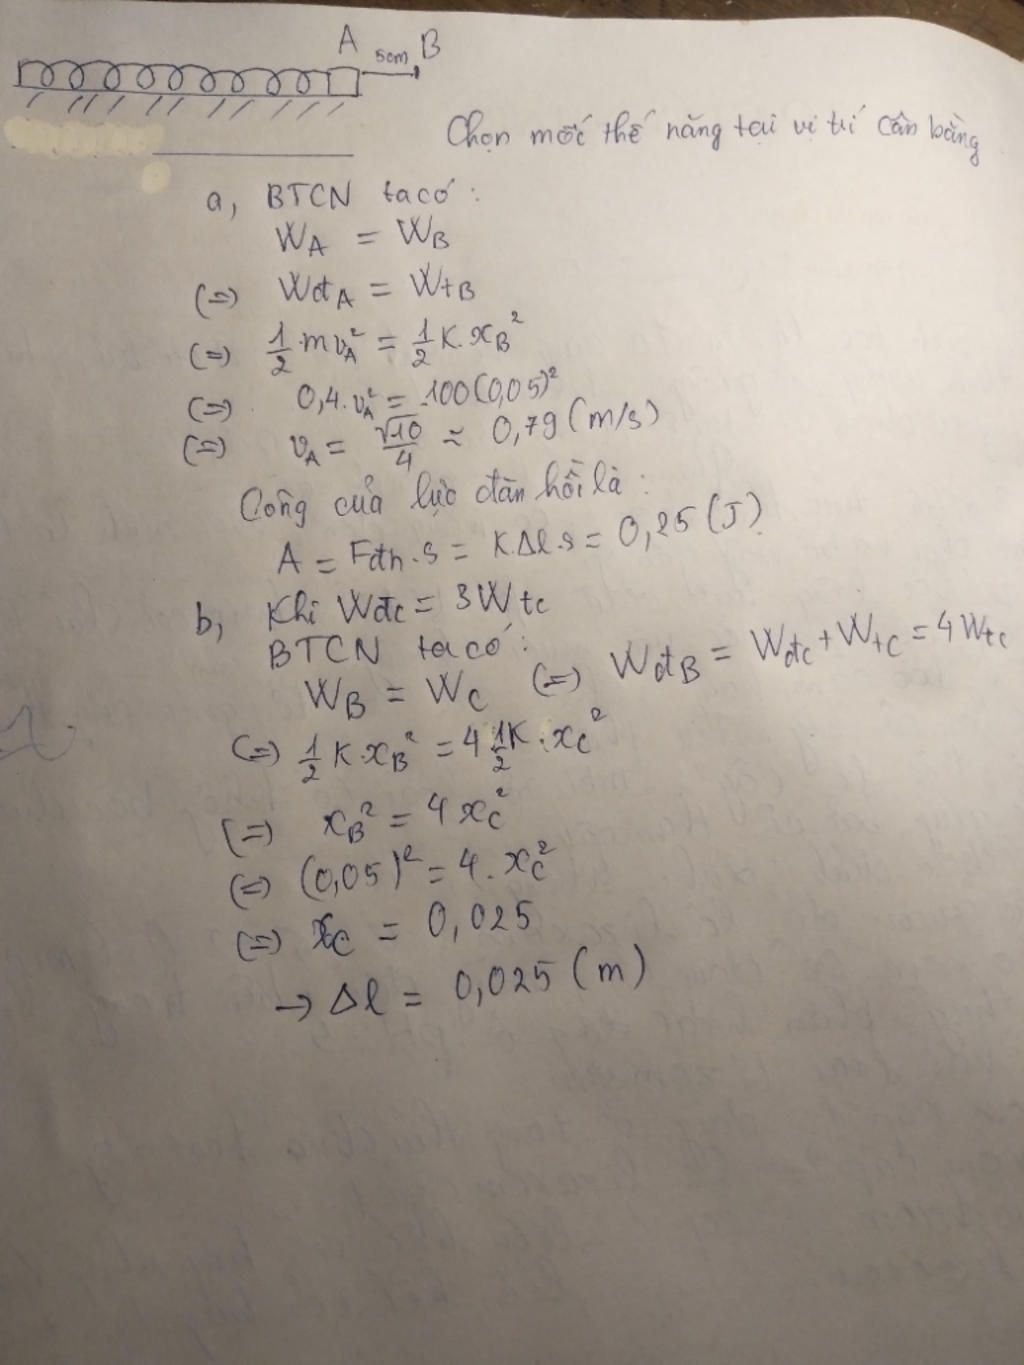 A 5cm B
Chọn mốc thế năng tại vị trí cân bằng
a, BTCN ta có :
W_A = W_B
(=) Wđ_A = Wt_B
(=) 1/2 . m v_A² = 1/2 K. x_B²
(=) 0,4. v_A² = 100(0,05)²
(=) v_A = √10/4 ≈ 0,79 (m/s)
Công của lực đàn hồi là :
A = Fđh . S = K.Δl.s = 0,25 (J).
b, Khi Wđc = 3W tc
BTCN ta có :
W_B = W_C (=) W đt B = Wđc + W_tC = 4 Wtc
(=) 1/2 K. x_B² = 4 1/2 K . x_C²
(=) x_B² = 4 x_C²
(=) (0,05)² = 4 . x_C²
(=) x_C = 0,025
→ Δl = 0,025 (m)